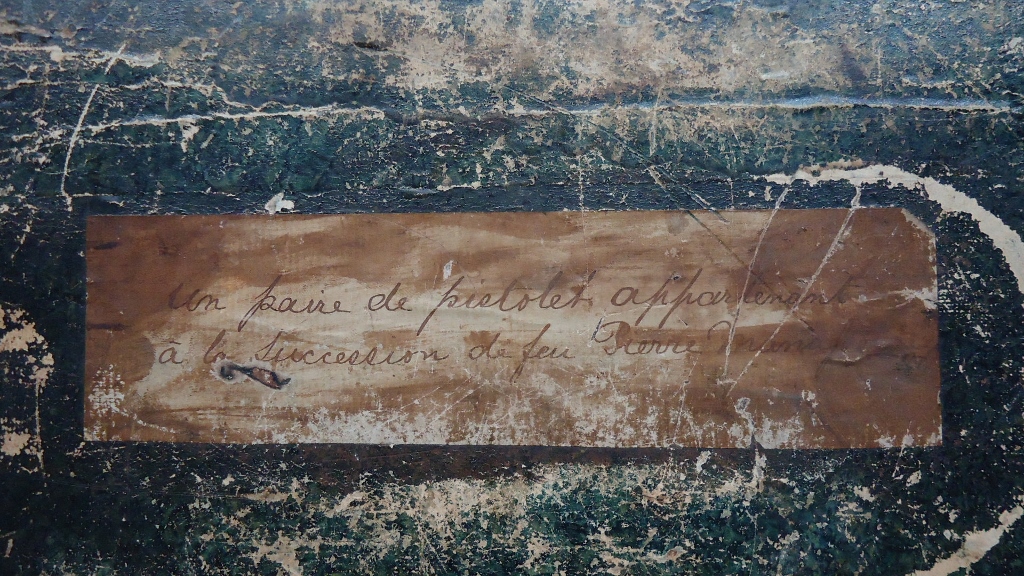 Un paire de pistolet appartenant
à la Succession de feu Pierre